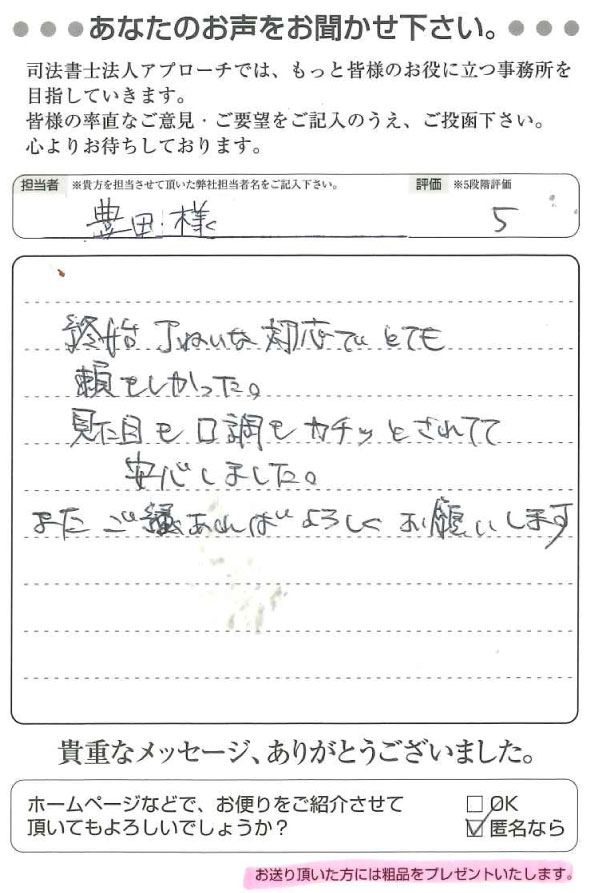 ●●●あなたのお声をお聞かせ下さい。●●●
司法書士法人アプローチでは、もっと皆様のお役に立つ事務所を
目指していきます。
皆様の率直なご意見・ご要望をご記入のうえ、ご投函下さい。
心よりお待ちしております。
担当者 ※貴方を担当させて頂いた弊社担当者名をご記入下さい。 評価 ※5段階評価
豊田様 5
終始丁ねいな対応でとても
頼もしかった。
見た目も口調もカチッとされてて
安心しました。
またご縁あればよろしくお願いします
貴重なメッセージ、ありがとうございました。
ホームページなどで、お便りをご紹介させて □OK
頂いてもよろしいでしょうか? ☑匿名なら
お送り頂いた方には粗品をプレゼントいたします。